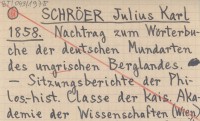 SCHRÖER Julius Karl
1858. Nachtrag zum Wörterbu-
che der deutschen Mundarten
des ungrischen Berglandes.
– Sitzungsberichte der Phi-
los.-hist. Classe der kais. Aka-
demie der Wissenschaften (Wien)